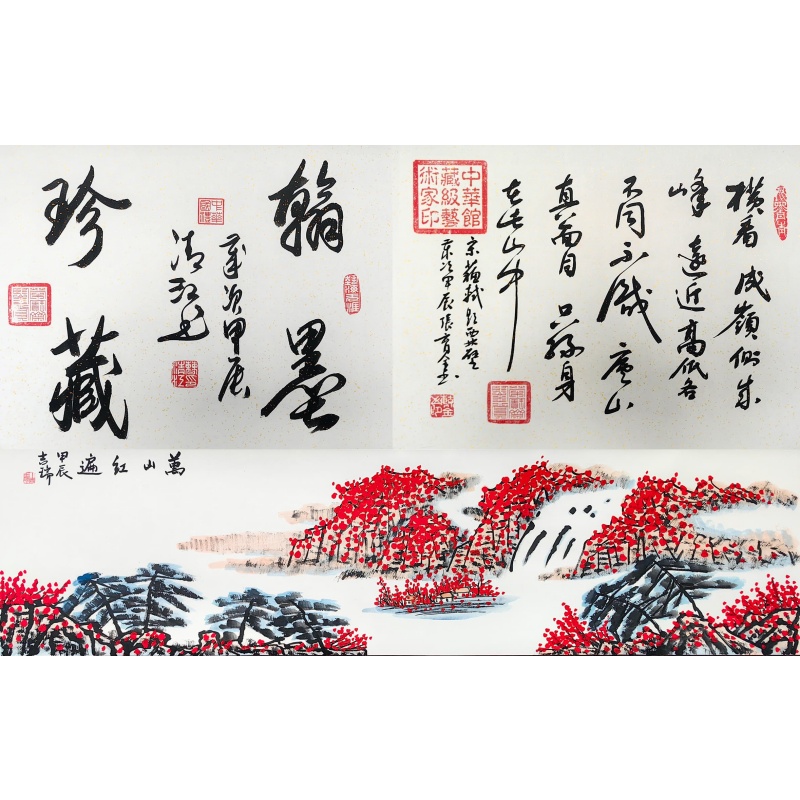 翰墨
歲次甲辰
珍藏
横看成嶺侧成
峰遠近高低各
不同不識庐山
真面目只缘身
在此山中
宋蘇軾題西壁
歲次甲辰
中華館
藏級藝
術家印
萬山红遍
甲辰
志瑞